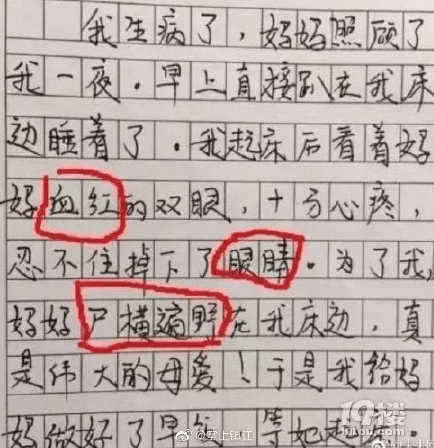 我生病了，妈妈照顾了
我一夜．早上直接趴在我床
边睡着了．我起床后看着妈
妈血红的双眼，十分心疼，
忍不住掉下了眼睛．为了我，
妈妈尸横遍野在我床边，真
是伟大的母爱！于是我给妈
妈做好了早 等她起
19楼
19lou.com
@掌上镇江